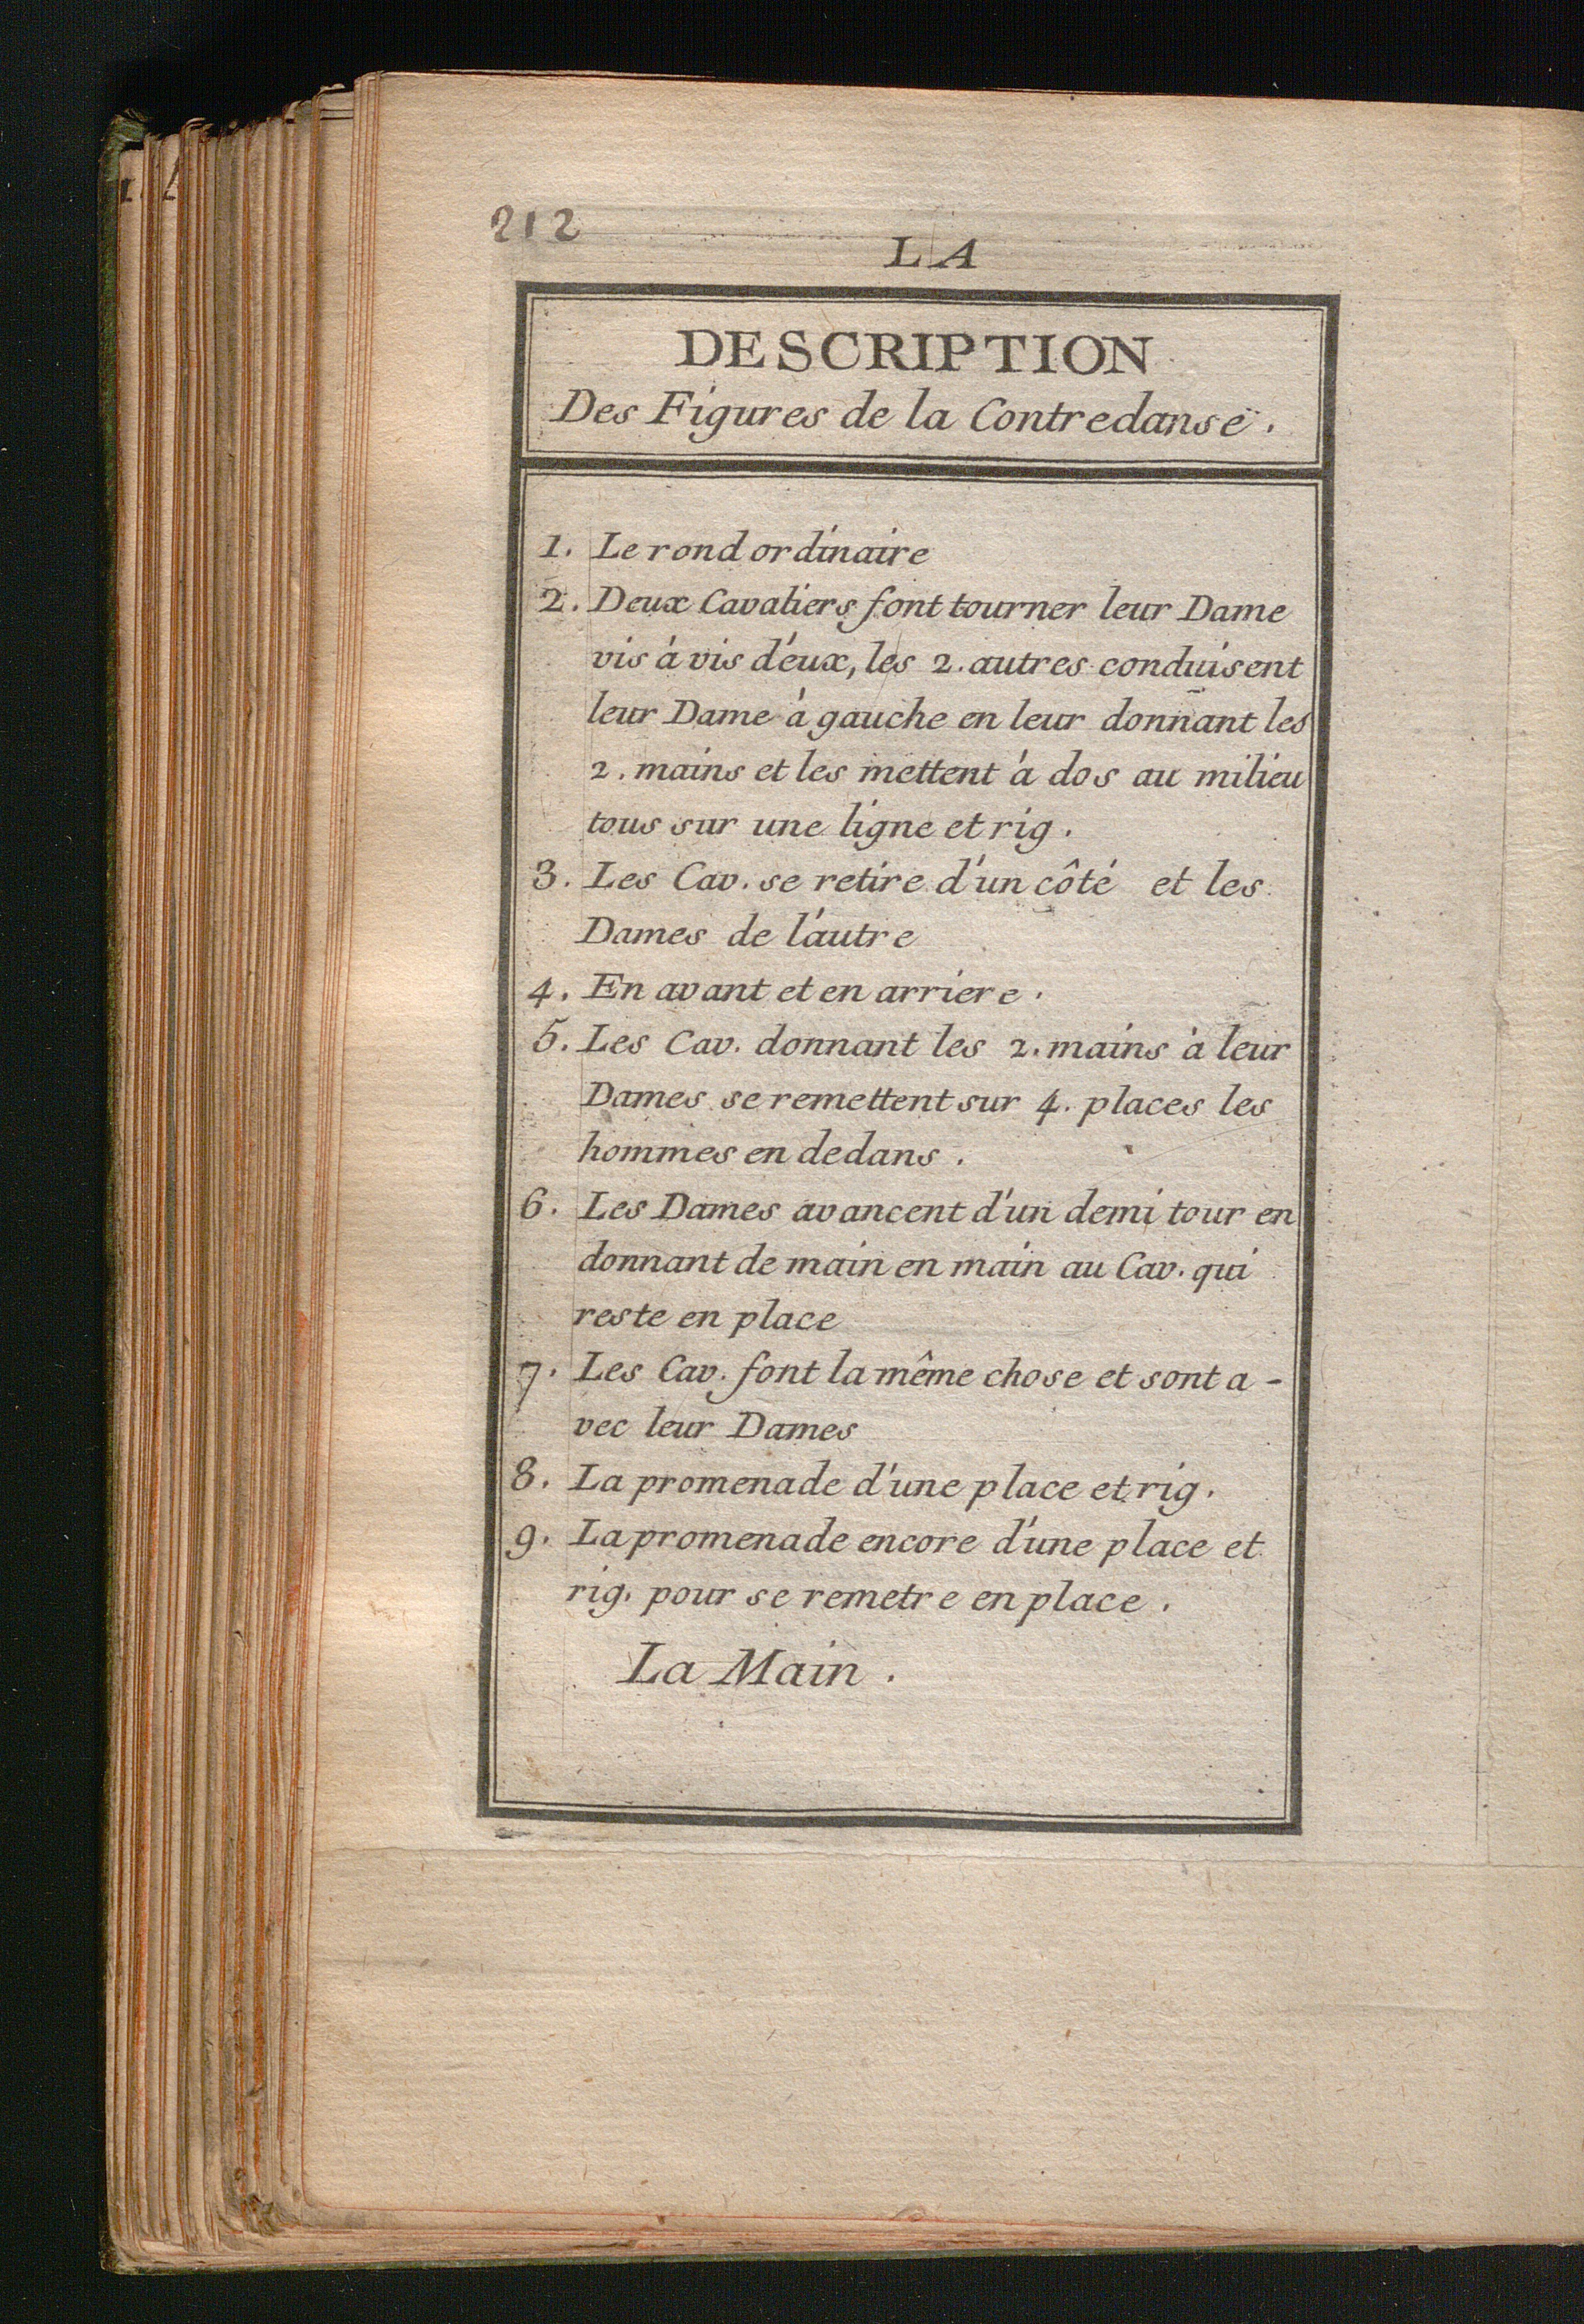 212
LA
DESCRIPTION
Des Figures de la Contredanse.
1. Le rond ordinaire
2. Deux Cavaliers font tourner leur Dame
vis à vis d'eux, les 2. autres conduisent
leur Dame à gauche en leur donnant les
2. mains et les mettent à dos au milieu
tous sur une ligne et rig.
3. Les Cav. se retire d'un côté et les
Dames de l'autre
4. En avant et en arriere.
5. Les Cav. donnant les 2. mains à leur
Dames se remettent sur 4. places les
hommes en dedans.
6. Les Dames avancent d'un demi tour en
donnant de main en main au Cav. qui
reste en place
7. Les Cav. font la même chose et sont a-
vec leur Dames
8. La promenade d'une place et rig.
9. La promenade encore d'une place et
rig. pour se remetre en place.
La Main.